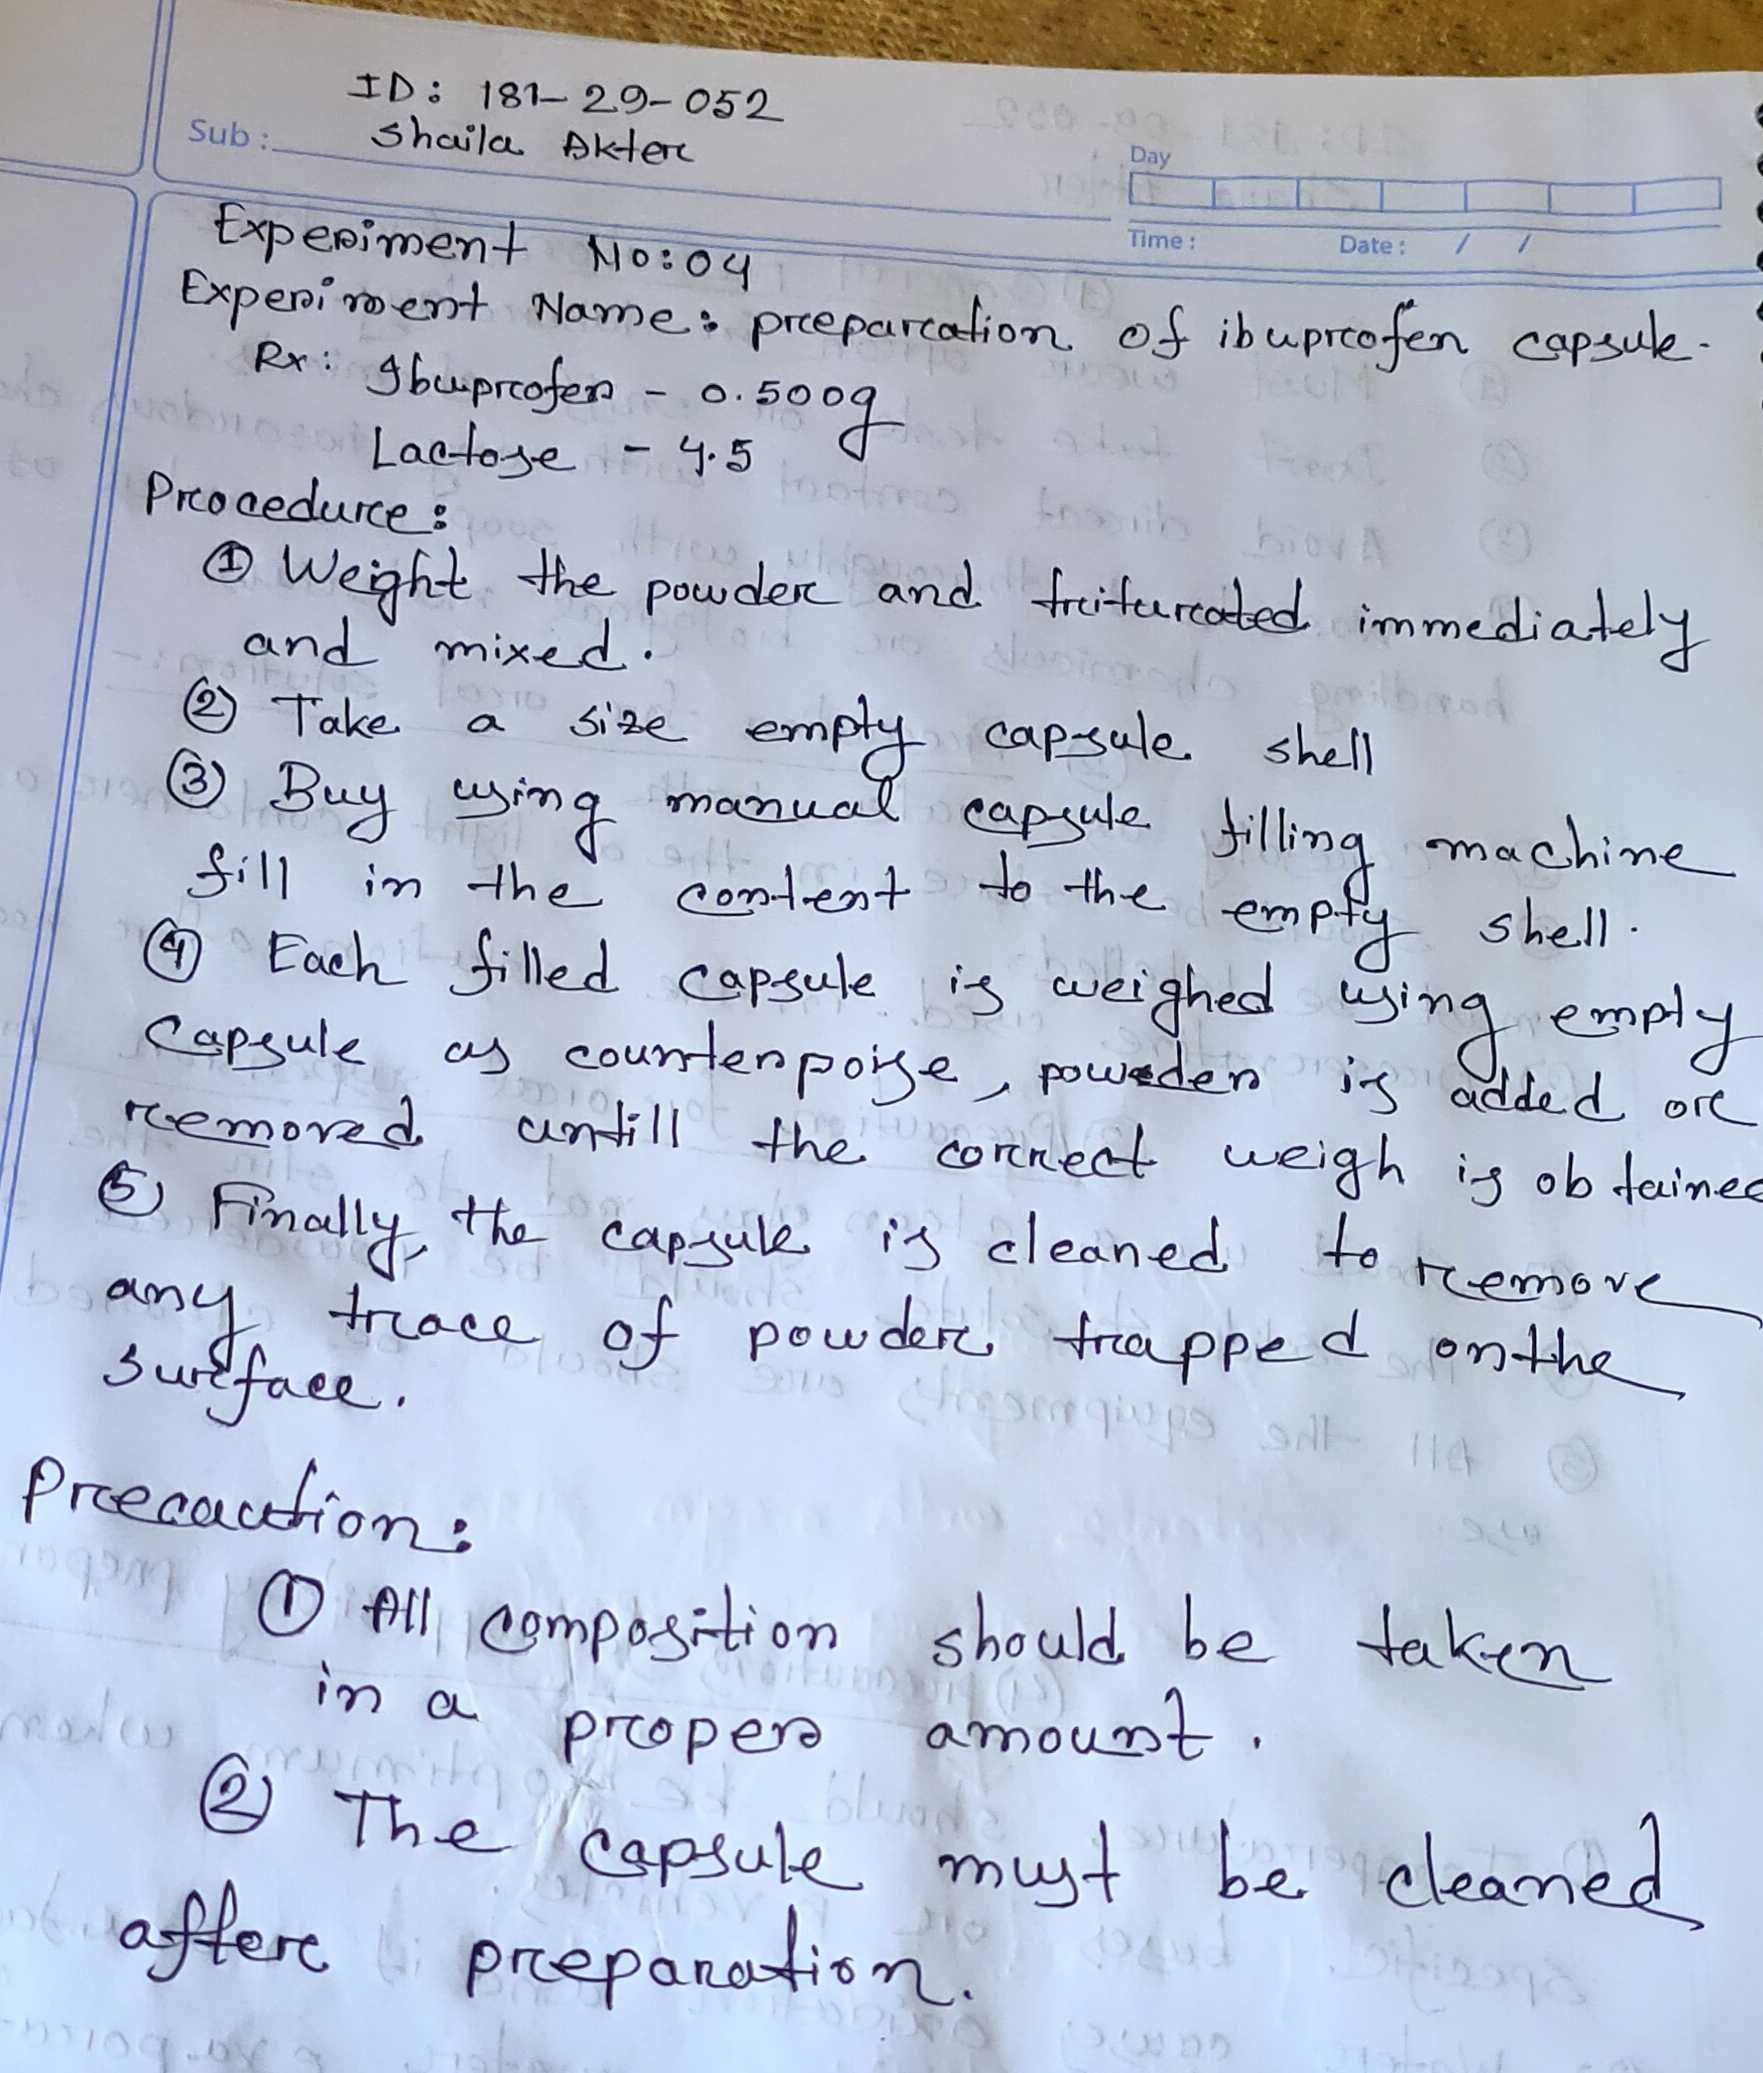 ID: 181-29-052
Sub: Shaila Akter
Day
Time: Date: / /
Experiment No: 04
Experiment Name: preparation of ibuprofen capsule.
Rx: Ibuprofen - 0.500g
Lactose - 4.5
Procedure:
① Weight the powder and triturated immediately
and mixed.
② Take a size empty capsule shell
③ Buy using manual capsule filling machine
fill in the content to the empty shell.
④ Each filled capsule is weighed using empty
capsule as counterpoise, powder is added or
removed untill the correct weigh is obtained
⑤ Finally, the capsule is cleaned to remove
any trace of powder trapped on the
surface.
Precaution:
① All composition should be taken
in a proper amount.
② The capsule must be cleaned
after preparation.